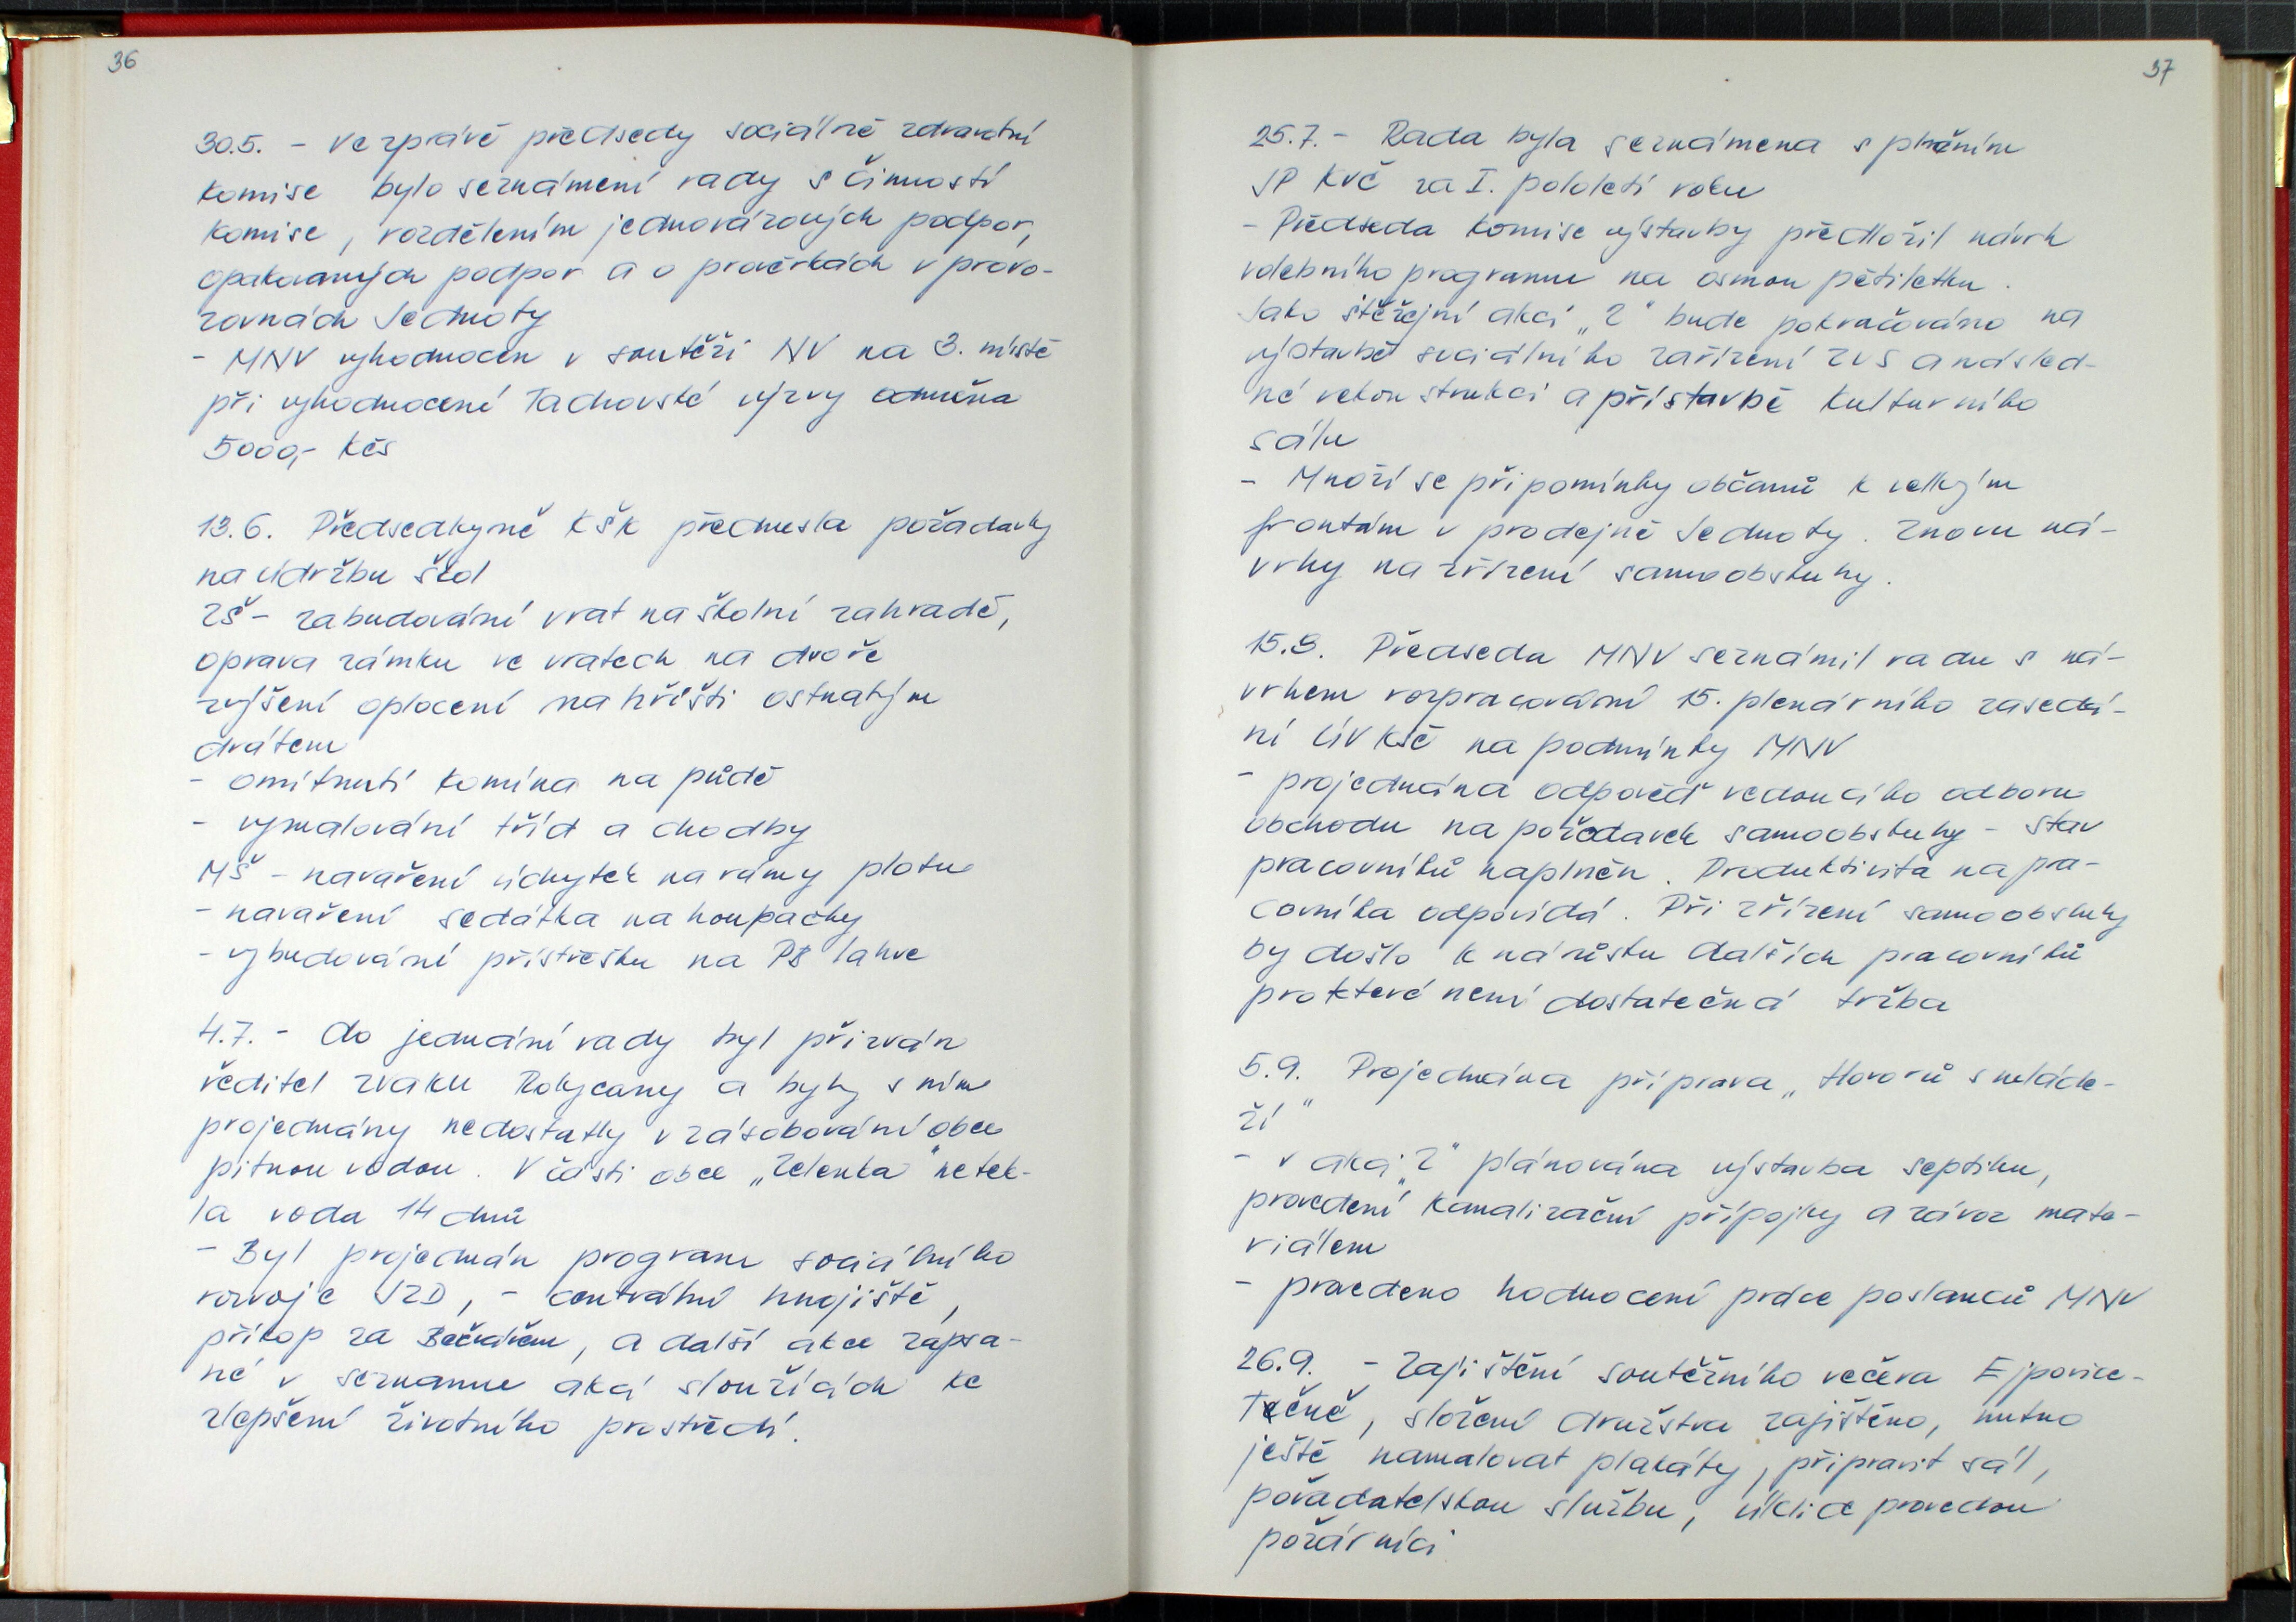 36
30.5. - Ve zprávě předsedy sociálně zdravotní
komise bylo seznámení rady s činností
komise, rozdělením jednorázových podpor,
opakovaných podpor a o prověrkách v provo-
zovnách Jednoty
- MNV vyhodnocen v soutěži NV na 3. místě
při vyhodnocení Tachovské výzvy odměna
5000,- Kčs
13.6. Předsedkyně KŠK přednesla požadavky
na údržbu škol
ZŠ - zabudování vrat na školní zahradě,
oprava zámku ve vratech na dvoře
zvýšení oplocení na hřišti ostnatým
drátem
- omítnutí komína na půdě
- vymalování tříd a chodby
MŠ - navaření úchytek na rámy plotu
- navaření sedátka na houpačky
- vybudování přístřešku na PB lahve
4.7. - do jednání rady byl přizván
ředitel Zvaku Rokycany a byly s ním
projednány nedostatky v zásobování obce
pitnou vodou. V části obce „Zelenka" netek-
la voda 14 dnů
- Byl projednán program sociálního
rozvoje JZD, - centrální hnojiště,
příkop za Bečvářem, a další akce zapsa-
né v seznamu akcí sloužících ke
zlepšení životního prostředí.
37
25.7. - Rada byla seznámena s plněním
JP KVČ za I. pololetí roku
- Předseda komise výstavby předložil návrh
volebního programu na osmou pětiletku.
Jako stěžejní akcí „Z" bude pokračováno na
výstavbě sociálního zařízení ZVS a násled-
né rekonstrukci a přístavbě kulturního
sálu
- Množí se připomínky občanů k velkým
frontám v prodejně Jednoty. Znovu ná-
vrhy na zřízení samoobsluhy.
15.8. Předseda MNV seznámil radu s ná-
vrhem rozpracování 15. plenárního zasedá-
ní ÚV KSČ na podmínky MNV
- projednána odpověď vedoucího odboru
obchodu na požadavek samoobsluhy - stav
pracovníků naplněn. Produktivita na pra-
covníka odpovídá. Při zřízení samoobsluhy
by došlo k nárůstu dalších pracovníků
pro které není dostatečná tržba
5.9. Projednána příprava „Hovorů s mláde-
ží"
- v akci „Z" plánována výstavba septiku,
provedení kanalizační přípojky a závoz mate-
riálem
- provedeno hodnocení práce poslanců MNV
26.9. - Zajištění soutěžního večera Ejpovice-
Těně, složení družstva zajištěno, nutno
ještě namalovat plakáty, připravit sál,
pořadatelskou službu, úklid provedou
požárníci